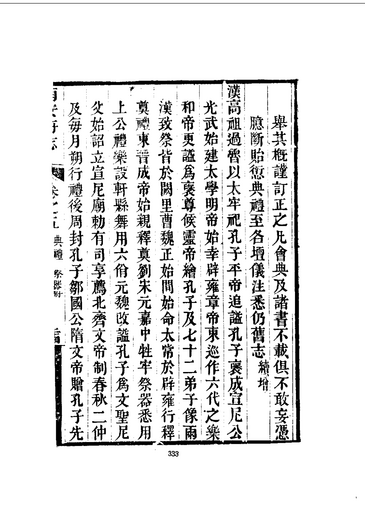 舉其概謹訂正之凡會典及諸書不載俱不敢妄憑
臆斷貽愆典禮至各壇儀注悉仍舊志續增
漢高祖過魯以太牢祀孔子平帝追諡孔子褒成宣尼公
光武始建太學明帝始幸辟雍章帝東巡作六代之樂
和帝更諡為褒尊候靈帝繪孔子及七十二弟子像兩
漢致祭皆於闕里曹魏正始間始命太常於辟雍行釋
奠禮東晉成帝始親釋奠劉宋元嘉中牲牢祭器悉用
上公禮樂設軒縣舞用六佾元魏改諡孔子為文聖尼
父始詔立宣尼廟勅有司享薦北齊文帝制春秋二仲
及每月朔行禮後周封孔子鄒國公隋文帝贈孔子先
府志 卷之五 典禮 祭器附
333